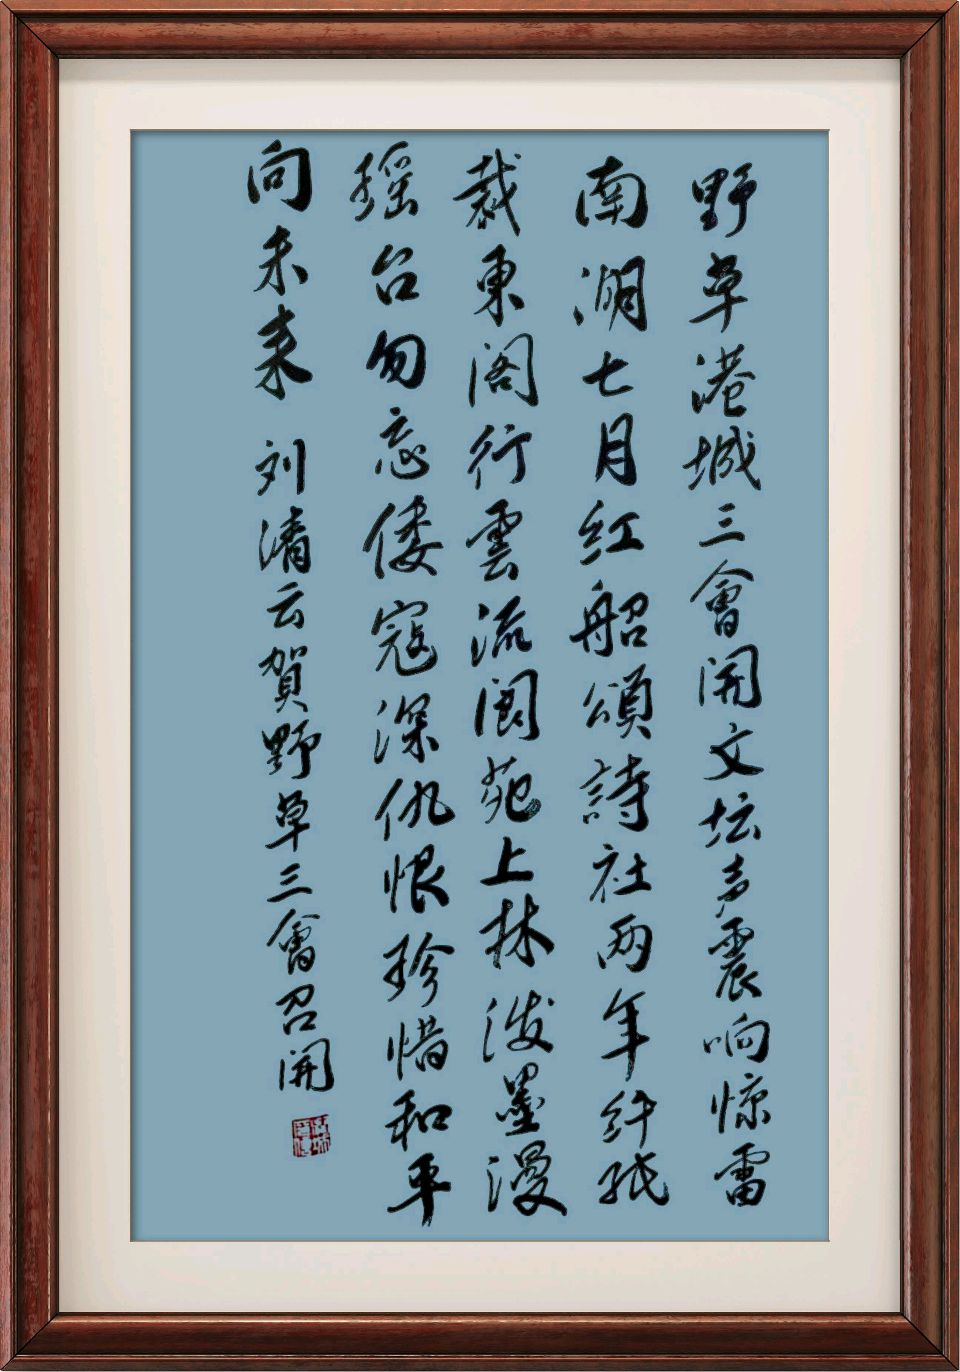 野草港城三會開文坛声震响惊雷
南湖七月红船頌詩社两年纤纸
裁東閣行雲流閬苑上林泼墨漫
瑶台勿忘倭寇深仇恨珍惜和平
向未来 刘清云賀野草三會召開